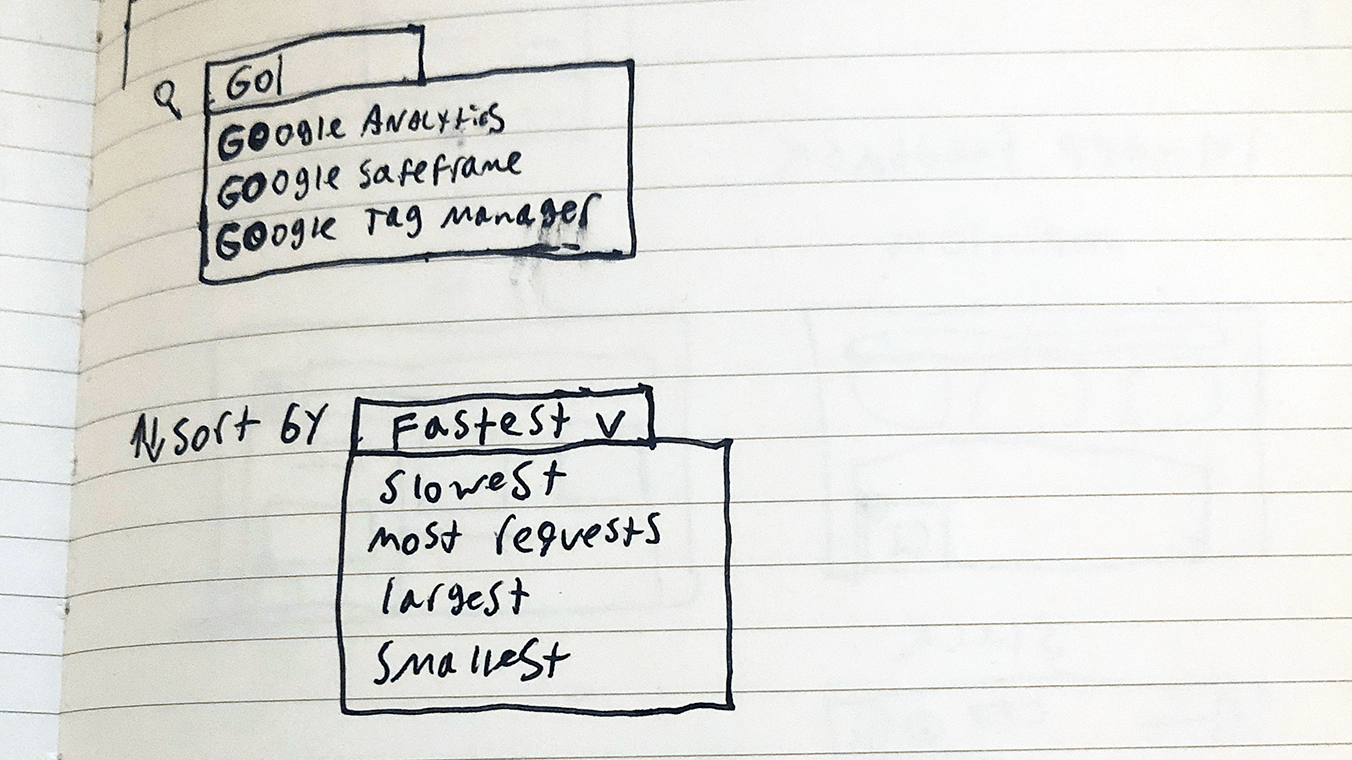 Go
Google Analytics
Google Safeframe
Google Tag Manager
Sort by Fastest
Slowest
most requests
largest
Smallest